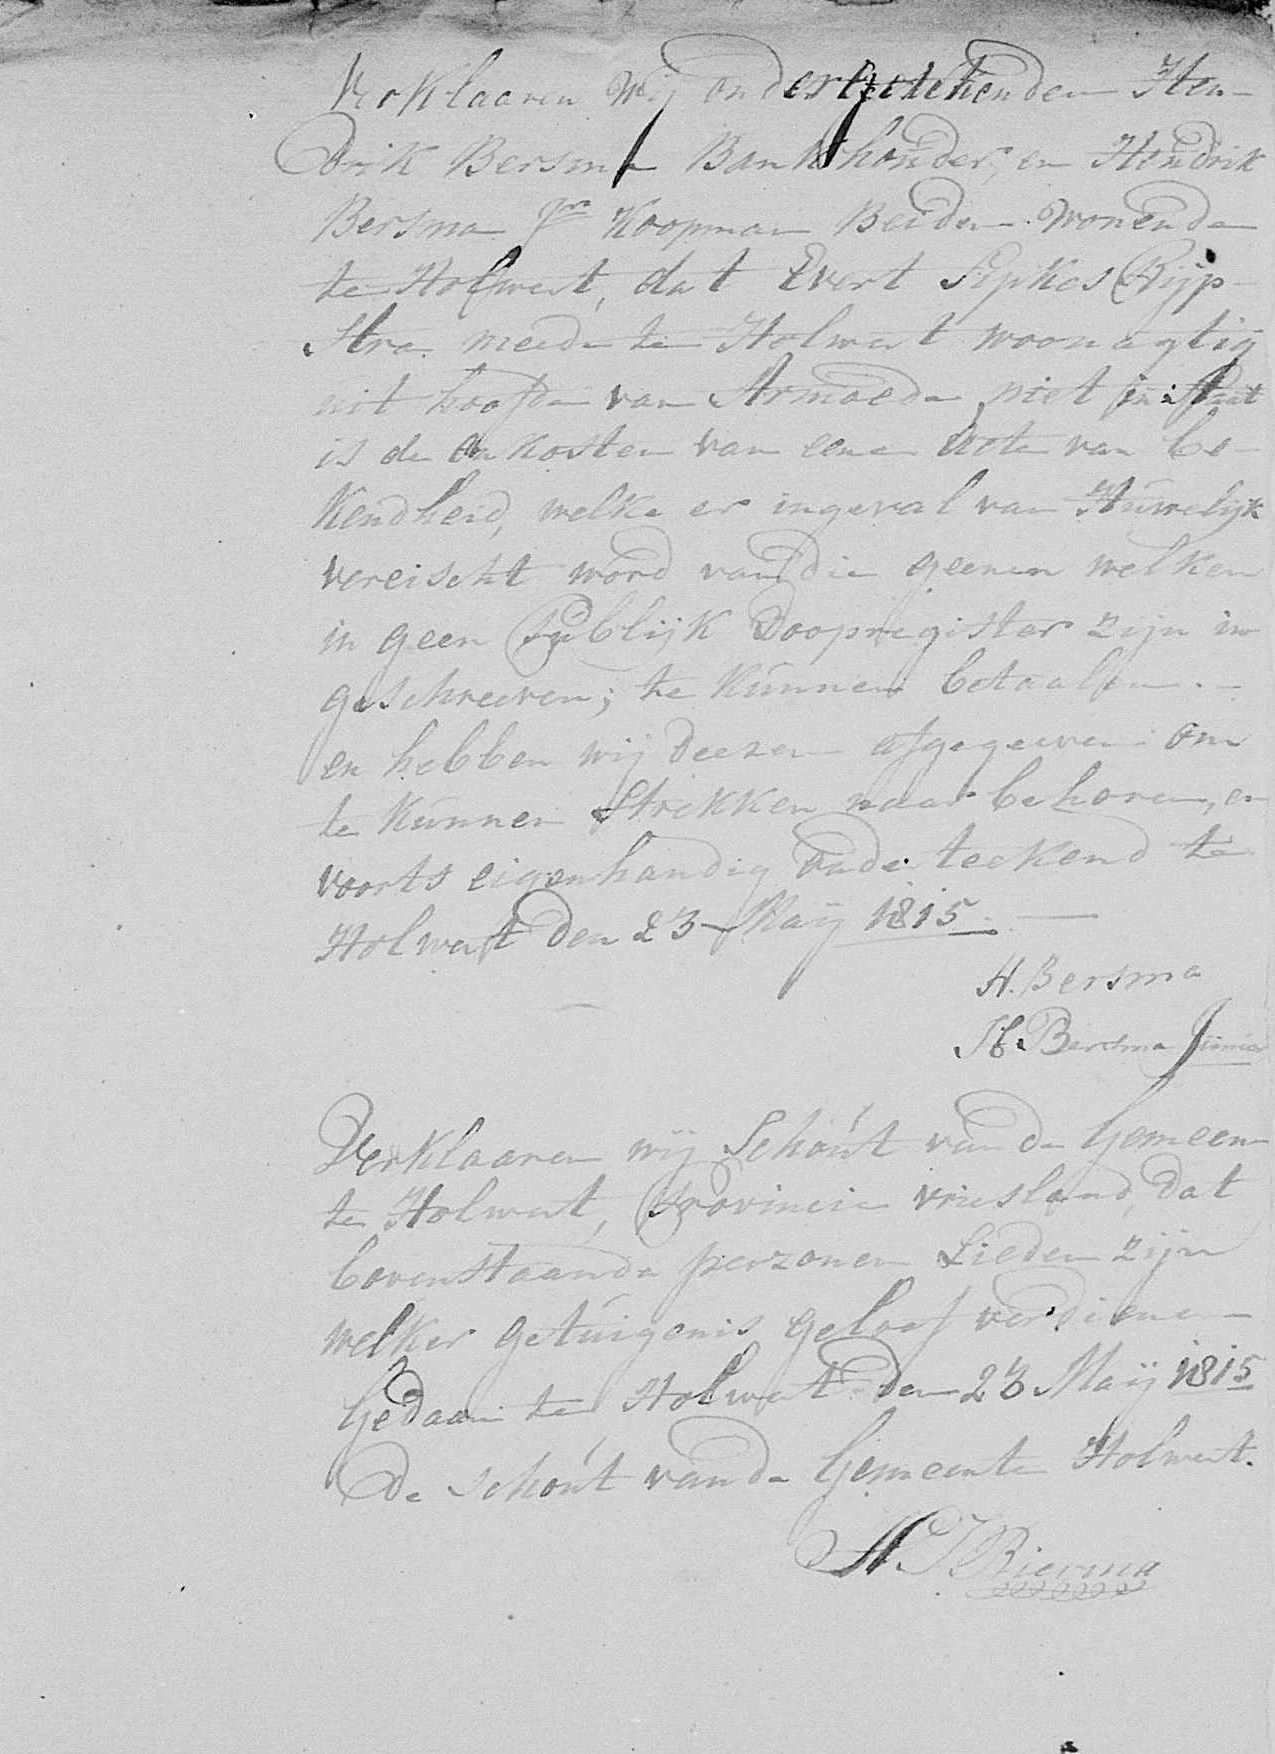 Verklaaren Wij ondergetekenden Hen-
drik Bersma Bankhouder, en Hendrik
Bersma Jnr Koopman Beiden wonende
te Holwert, dat Evert Sipkes Rijp-
stra meede te Holwert woonagtig
uit hoofde van Armoede niet in staat
is de onkosten van eene Acte van be-
kendheid, welke er ingeval van Huwelijk
vereischt word van die geenen welken
in geen Publijk Doopregister zijn in
geschreeven; te kunnen betaalen.-
en hebben wij deezen afgegeeven om
te kunnen Strekken naar behoren, en
voorts eigenhandig onderteekend te
Holwert den 23 Maij 1815.
H. Bersma
H. Bersma Junior
Verklaaren wij Schout van de Gemeen
te Holwert, Provincie vriesland, dat
bovenstaande perzonen Lieden zijn
welker getuigenis geloof verdienen
Gedaan te Holwert den 23 Maij 1815
De schout van de Gemeente Holwert.
Bierma